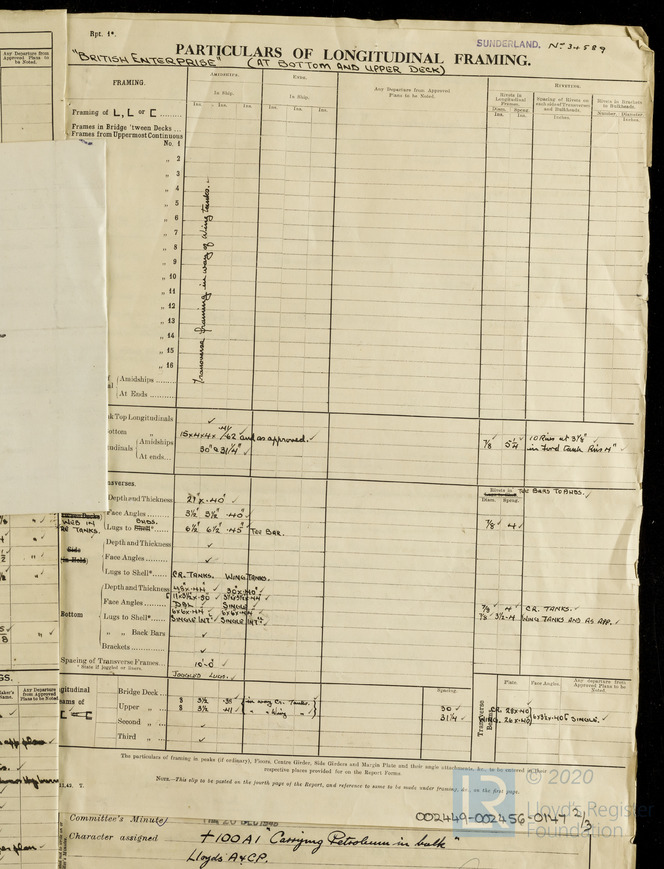 Rpt. 1*.
SUNDERLAND. No 34589
PARTICULARS OF LONGITUDINAL FRAMING.
"BRITISH ENTERPRISE" (AT BOTTOM AND UPPER DECK)
Any Departure from Approved Plans to be Noted.
FRAMING.
AMIDSHIPS.
ENDS.
In Ship.
In Ship.
Any Departure from Approved Plans to be Noted.
RIVETING.
Rivets in Longitudinal Frames.
Spacing of Rivets on each side of Transverses and Bulkheads.
Rivets in Brackets to Bulkheads.
Diam. Spcng.
Number. Diameter.
Ins. Ins. Ins. Ins. Ins. Ins.
Ins. Ins. Inches. Inches.
Framing of L, L or [
Frames in Bridge 'tween Decks ...
Frames from Uppermost Continuous
No. 1
" 2
" 3
" 4
" 5
" 6
" 7
" 8
" 9
" 10
" 11
" 12
" 13
" 14
" 15
" 16
Transverse framing in way of wing tanks.
Amidships
At Ends
Top Longitudinals ✓
ottom "
Amidships 15x4x4x .44/.62 and as approved. ✓
At ends... 30" & 31 1/4" ✓
7/8 ✓ 5 1/4 ✓
10 Rivs at 3 1/8" ✓
verses.
Rivets in TEE BARS TO BHDS. ✓
Diam. Spcng.
Depth and Thickness 27" x .40" ✓
Face Angles 3 1/2" 3 1/2" .40" ✓
7/8 ✓ 4 ✓
WEB IN
TANKS.
Lugs to BHDS. 6 1/2" 6 1/2" .45" ✓ TEE BAR.
Depth and Thickness
Side
(in Hold)
Face Angles ✓
Lugs to Shell* CR. TANKS. WING TANKS.
Depth and Thickness 48 x .44 ✓ 30 x .40" ✓
Face Angles
Bottom
Lugs to Shell*
7/8 4" CR. TANKS. ✓
7/8 3 1/2-4 WING TANKS AND AS APP. ✓
" " Back Bars ✓
Brackets ✓
Spacing of Transverse Frames... 10'-0 ✓
* State if joggled or liners.
JOGGLED LUGS. ✓
Spacing.
Plate Face Angles. Any departure from Approved Plans to be Noted.
gitudinal
eams of
Bridge Deck ...
Upper " ... 8 3 1/2 .35 ✓ in way Cr. Tanks. ✓ 30 ✓
8 3 1/2 .41 ✓ " " Wing " ✓ 31 1/4 ✓
Second " ... ✓
Third " ... ✓
Transverse Beams.
CR. 28 x .40
WING. 26 x .40 6x3 1/2 x .40 SINGLE. ✓
The particulars of framing in peaks (if ordinary), Floors, Centre Girder, Side Girders and Margin Plate and their angle attachments, &c., to be entered in their
respective places provided for on the Report Forms.
NOTE.—This slip to be pasted on the fourth page of the Report, and reference to same to be made under framing, &c., on the first page.
Committee's Minute
Character assigned
+100A1 "Carrying Petroleum in bulk"
Lloyds A&CP.
002449-002456-0147 2/3
© 2020
LR
Lloyd's Register
Foundation